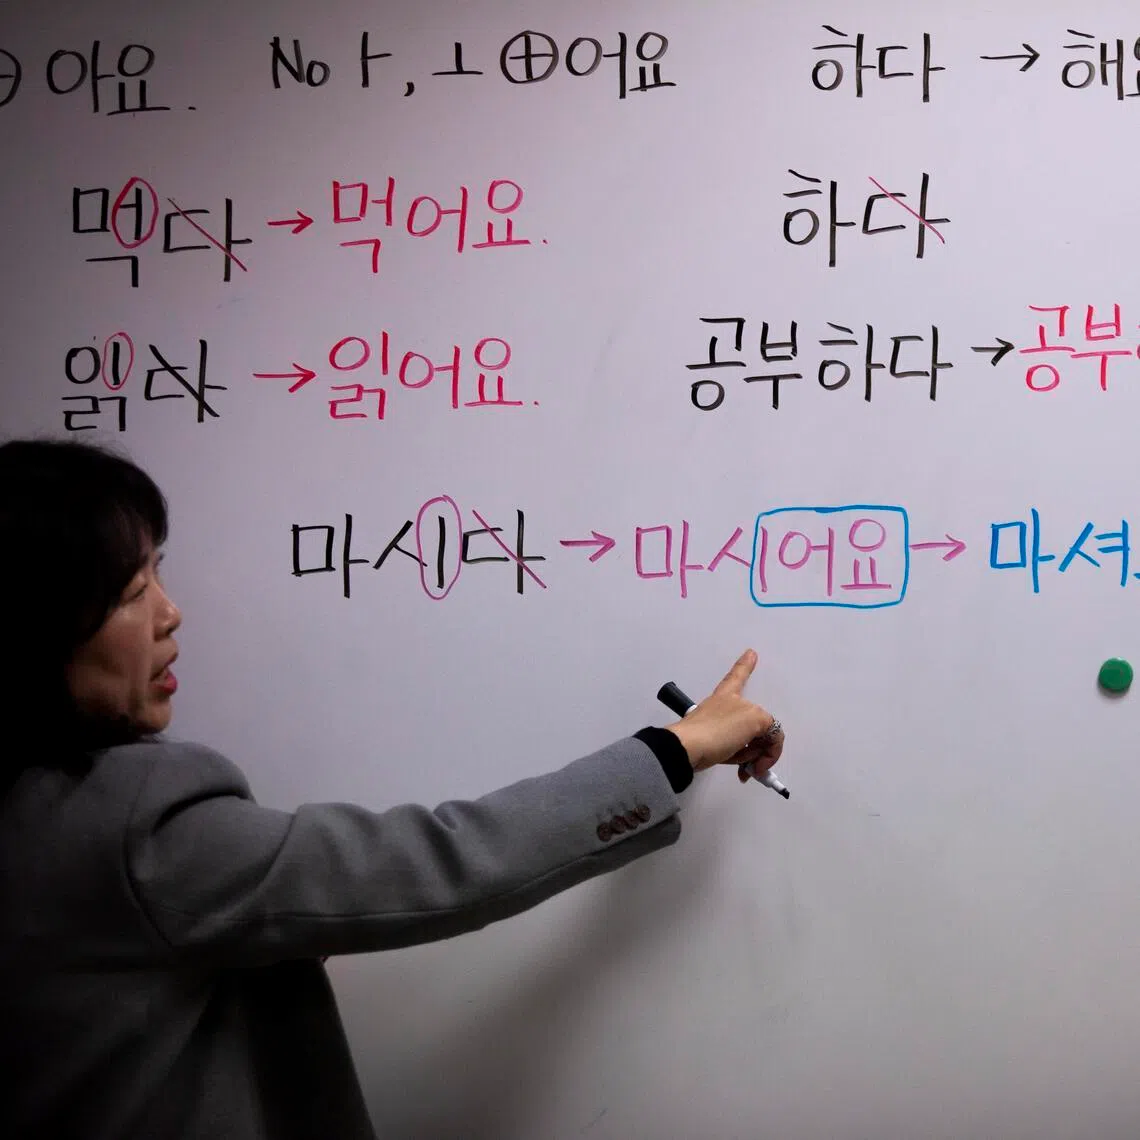 ⊕ 아요. No ㅏ, ㅗ ⊕어요 하다 → 해요
먹다 → 먹어요. 하다
읽다 → 읽어요. 공부하다 → 공부
마시다 → 마시어요 → 마셔